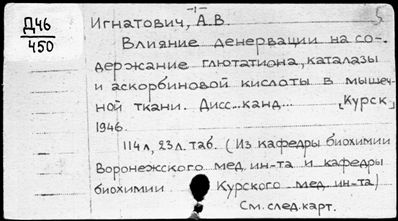 Д46
450
Игнатович, А.В.
5
Влияние денервации на со-
держание глютатиона, каталазы
и аскорбиновой кислоты в мышеч-
ной ткани. Дисс...канд... [Курск]
1946.
114 л, 23 л. таб. (Из кафедры биохимии
Воронежского мед. ин-та и кафедры
биохимии Курского мед. ин-та)
См. след. карт.